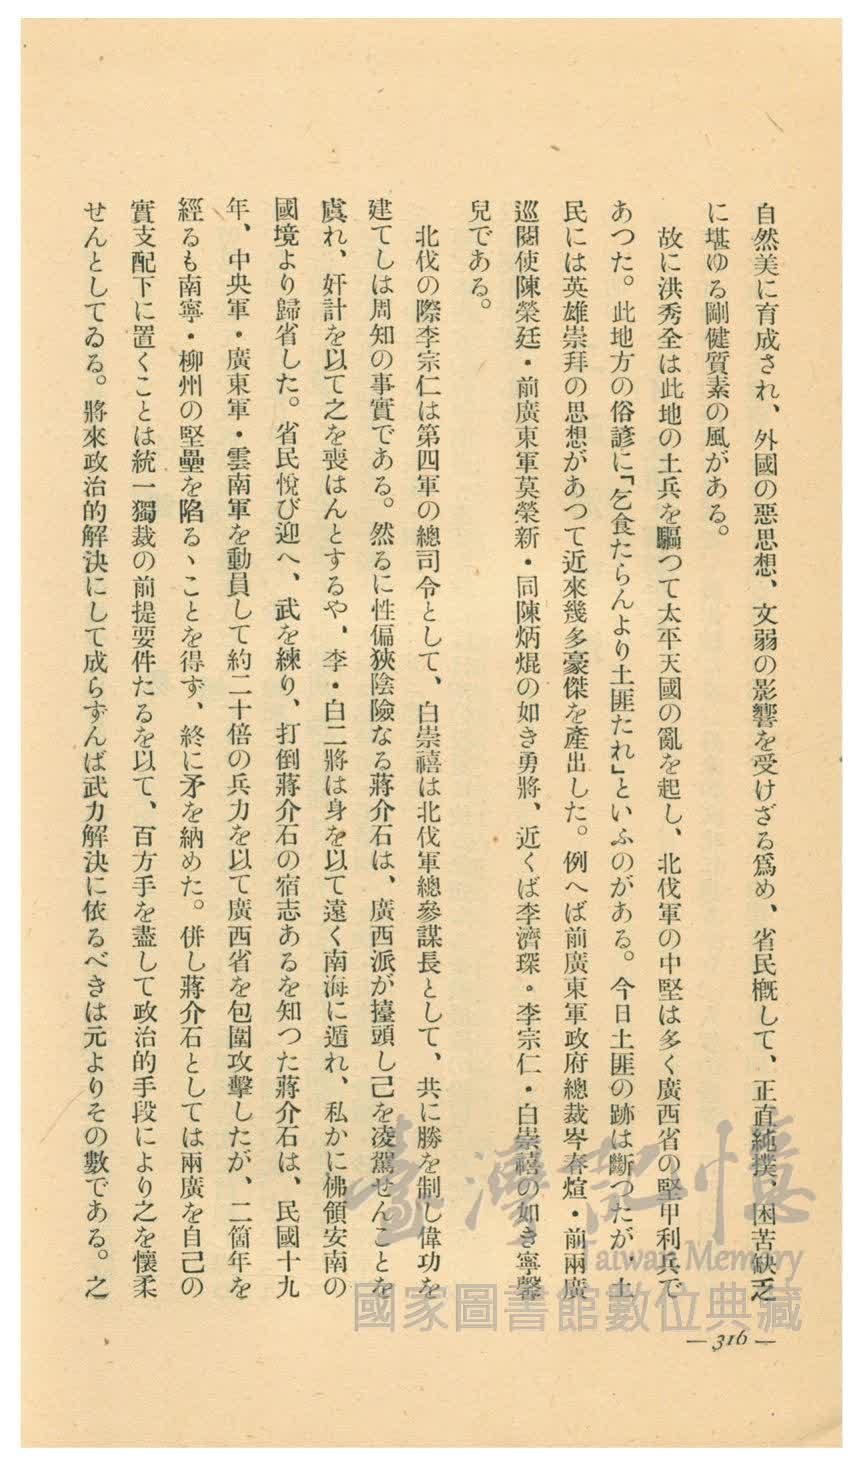 自然美に育成され、外國の惡思想、文弱の影響を受けざる爲め、省民概して、正直純撲、困苦缺乏
に堪ゆる剛健質素の風がある。
故に洪秀全は此地の土兵を驅つて太平天國の亂を起し、北伐軍の中堅は多く廣西省の堅甲利兵で
あつた。此地方の俗諺に「乞食たらんより土匪たれ」といふのがある。今日土匪の跡は斷つたが、土
民には英雄崇拜の思想があつて近來幾多豪傑を產出した。例へば前廣東軍政府總裁岑春煊・前兩廣
巡閱使陳榮廷・前廣東軍莫榮新・同陳炳焜の如き勇將、近くば李濟琛。李宗仁・白崇禧の如き寧馨
兒である。
北伐の際李宗仁は第四軍の總司令として、白崇禧は北伐軍總參謀長として、共に勝を制し偉功を
建てしは周知の事實である。然るに性偏狹陰險なる蔣介石は、廣西派が擡頭し己を凌駕せんことを
虞れ、奸計を以て之を喪はんとするや、李・白二將は身を以て遠く南海に遁れ、私かに佛領安南の
國境より歸省した。省民悅び迎へ、武を練り、打倒蔣介石の宿志あるを知つた蔣介石は、民國十九
年、中央軍・廣東軍・雲南軍を動員して約二十倍の兵力を以て廣西省を包圍攻擊したが、二箇年を
經るも南寧・柳州の堅壘を陷るヽことを得ず、終に矛を納めた。併し蔣介石としては兩廣を自己の
實支配下に置くことは統一獨裁の前提要件たるを以て、百方手を盡して政治的手段により之を懷柔
せんとしてゐる。將來政治的解決にして成らずんば武力解決に依るべきは元よりその數である。之
— 316 —
臺灣記憶
Taiwan Memory
國家圖書館數位典藏